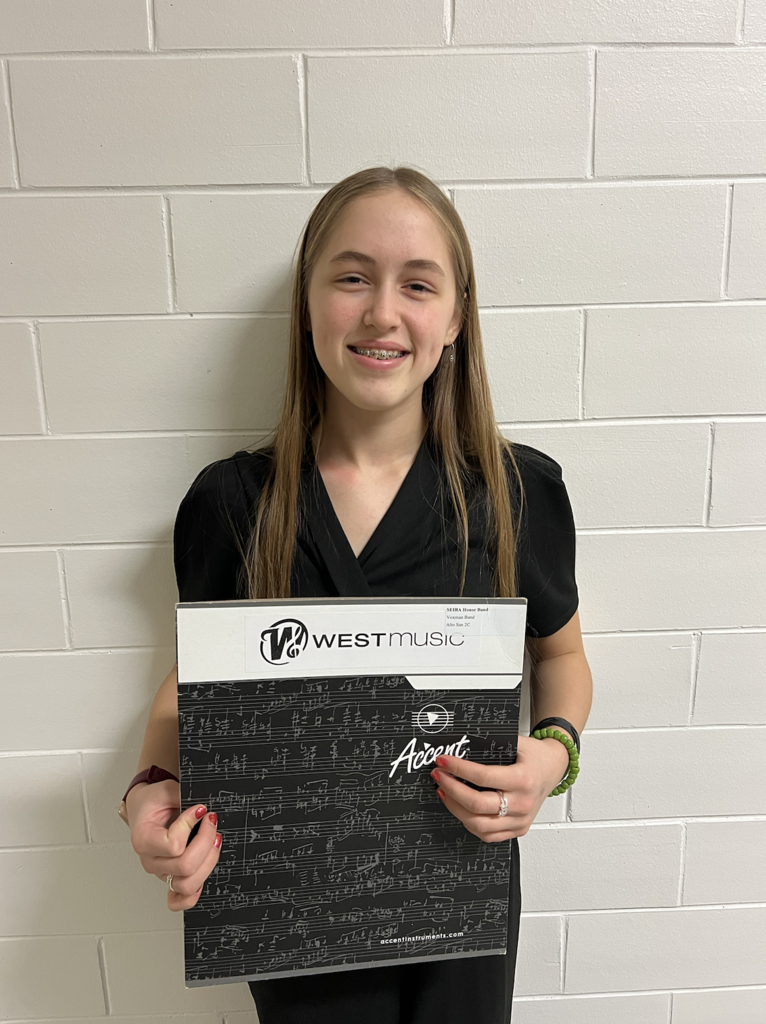 SEIBA Honor Band
Voxman Band
Alto Sax 2C
WESTMUSIC
Accent
accentinstruments.com